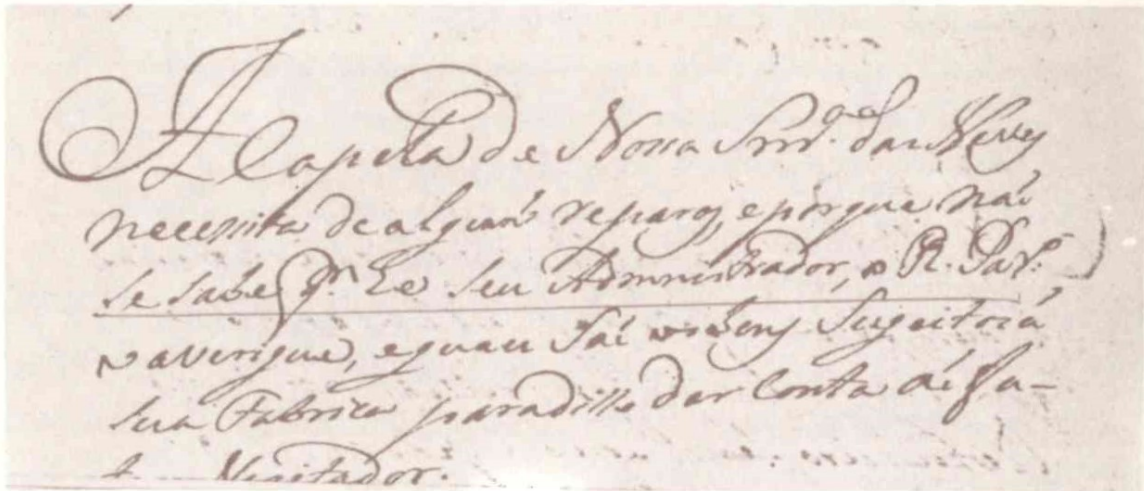 A Capella de Nossa Snrª. das Neves
necessita de alguns reparos, e porque naõ
se sabe qm. he seu Admnistrador, o R. Par.º
o averigue, e quaes saõ os bens sugeitos á
sua Fabrica para dillo dar Conta ao fu-
Vizitador.